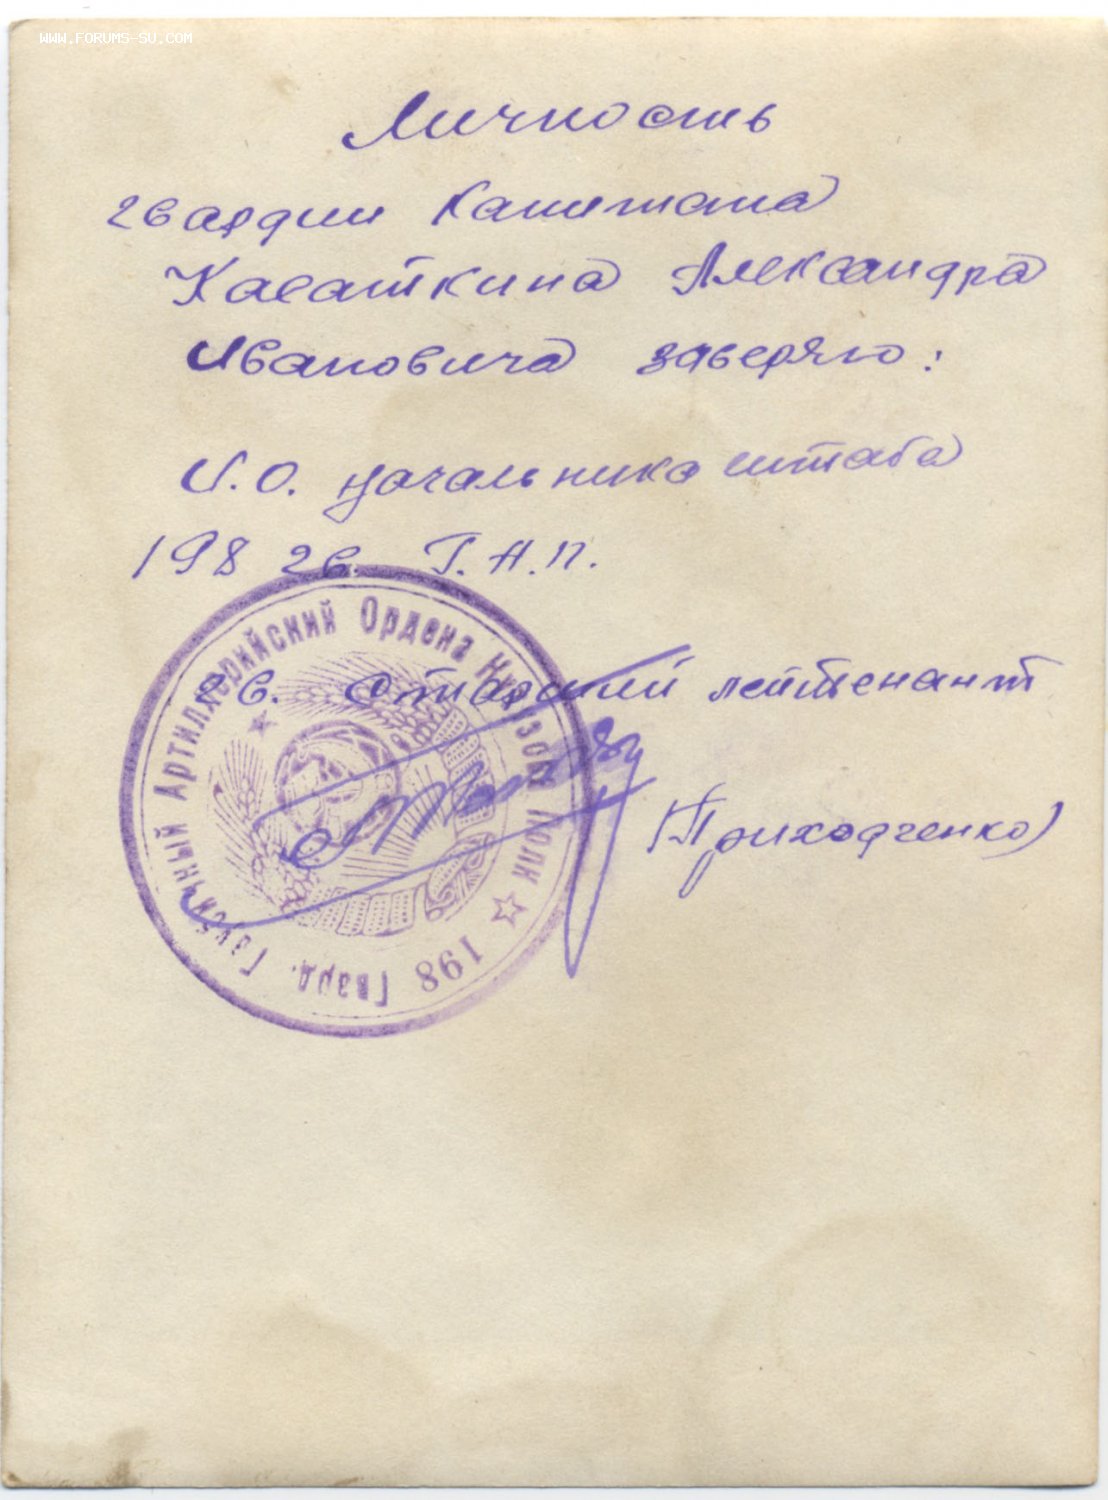 WWW.FORUMS-SU.COM
Личность
гвардии Капитана
Касаткина Александра
Ивановича заверяю:
И.О. начальника штаба
198 гв. Г.А.П.
гв. старший лейтенант
(Приходченко)
198 Гвард. Гаубичный Артиллерийский Ордена Кутузова Полк